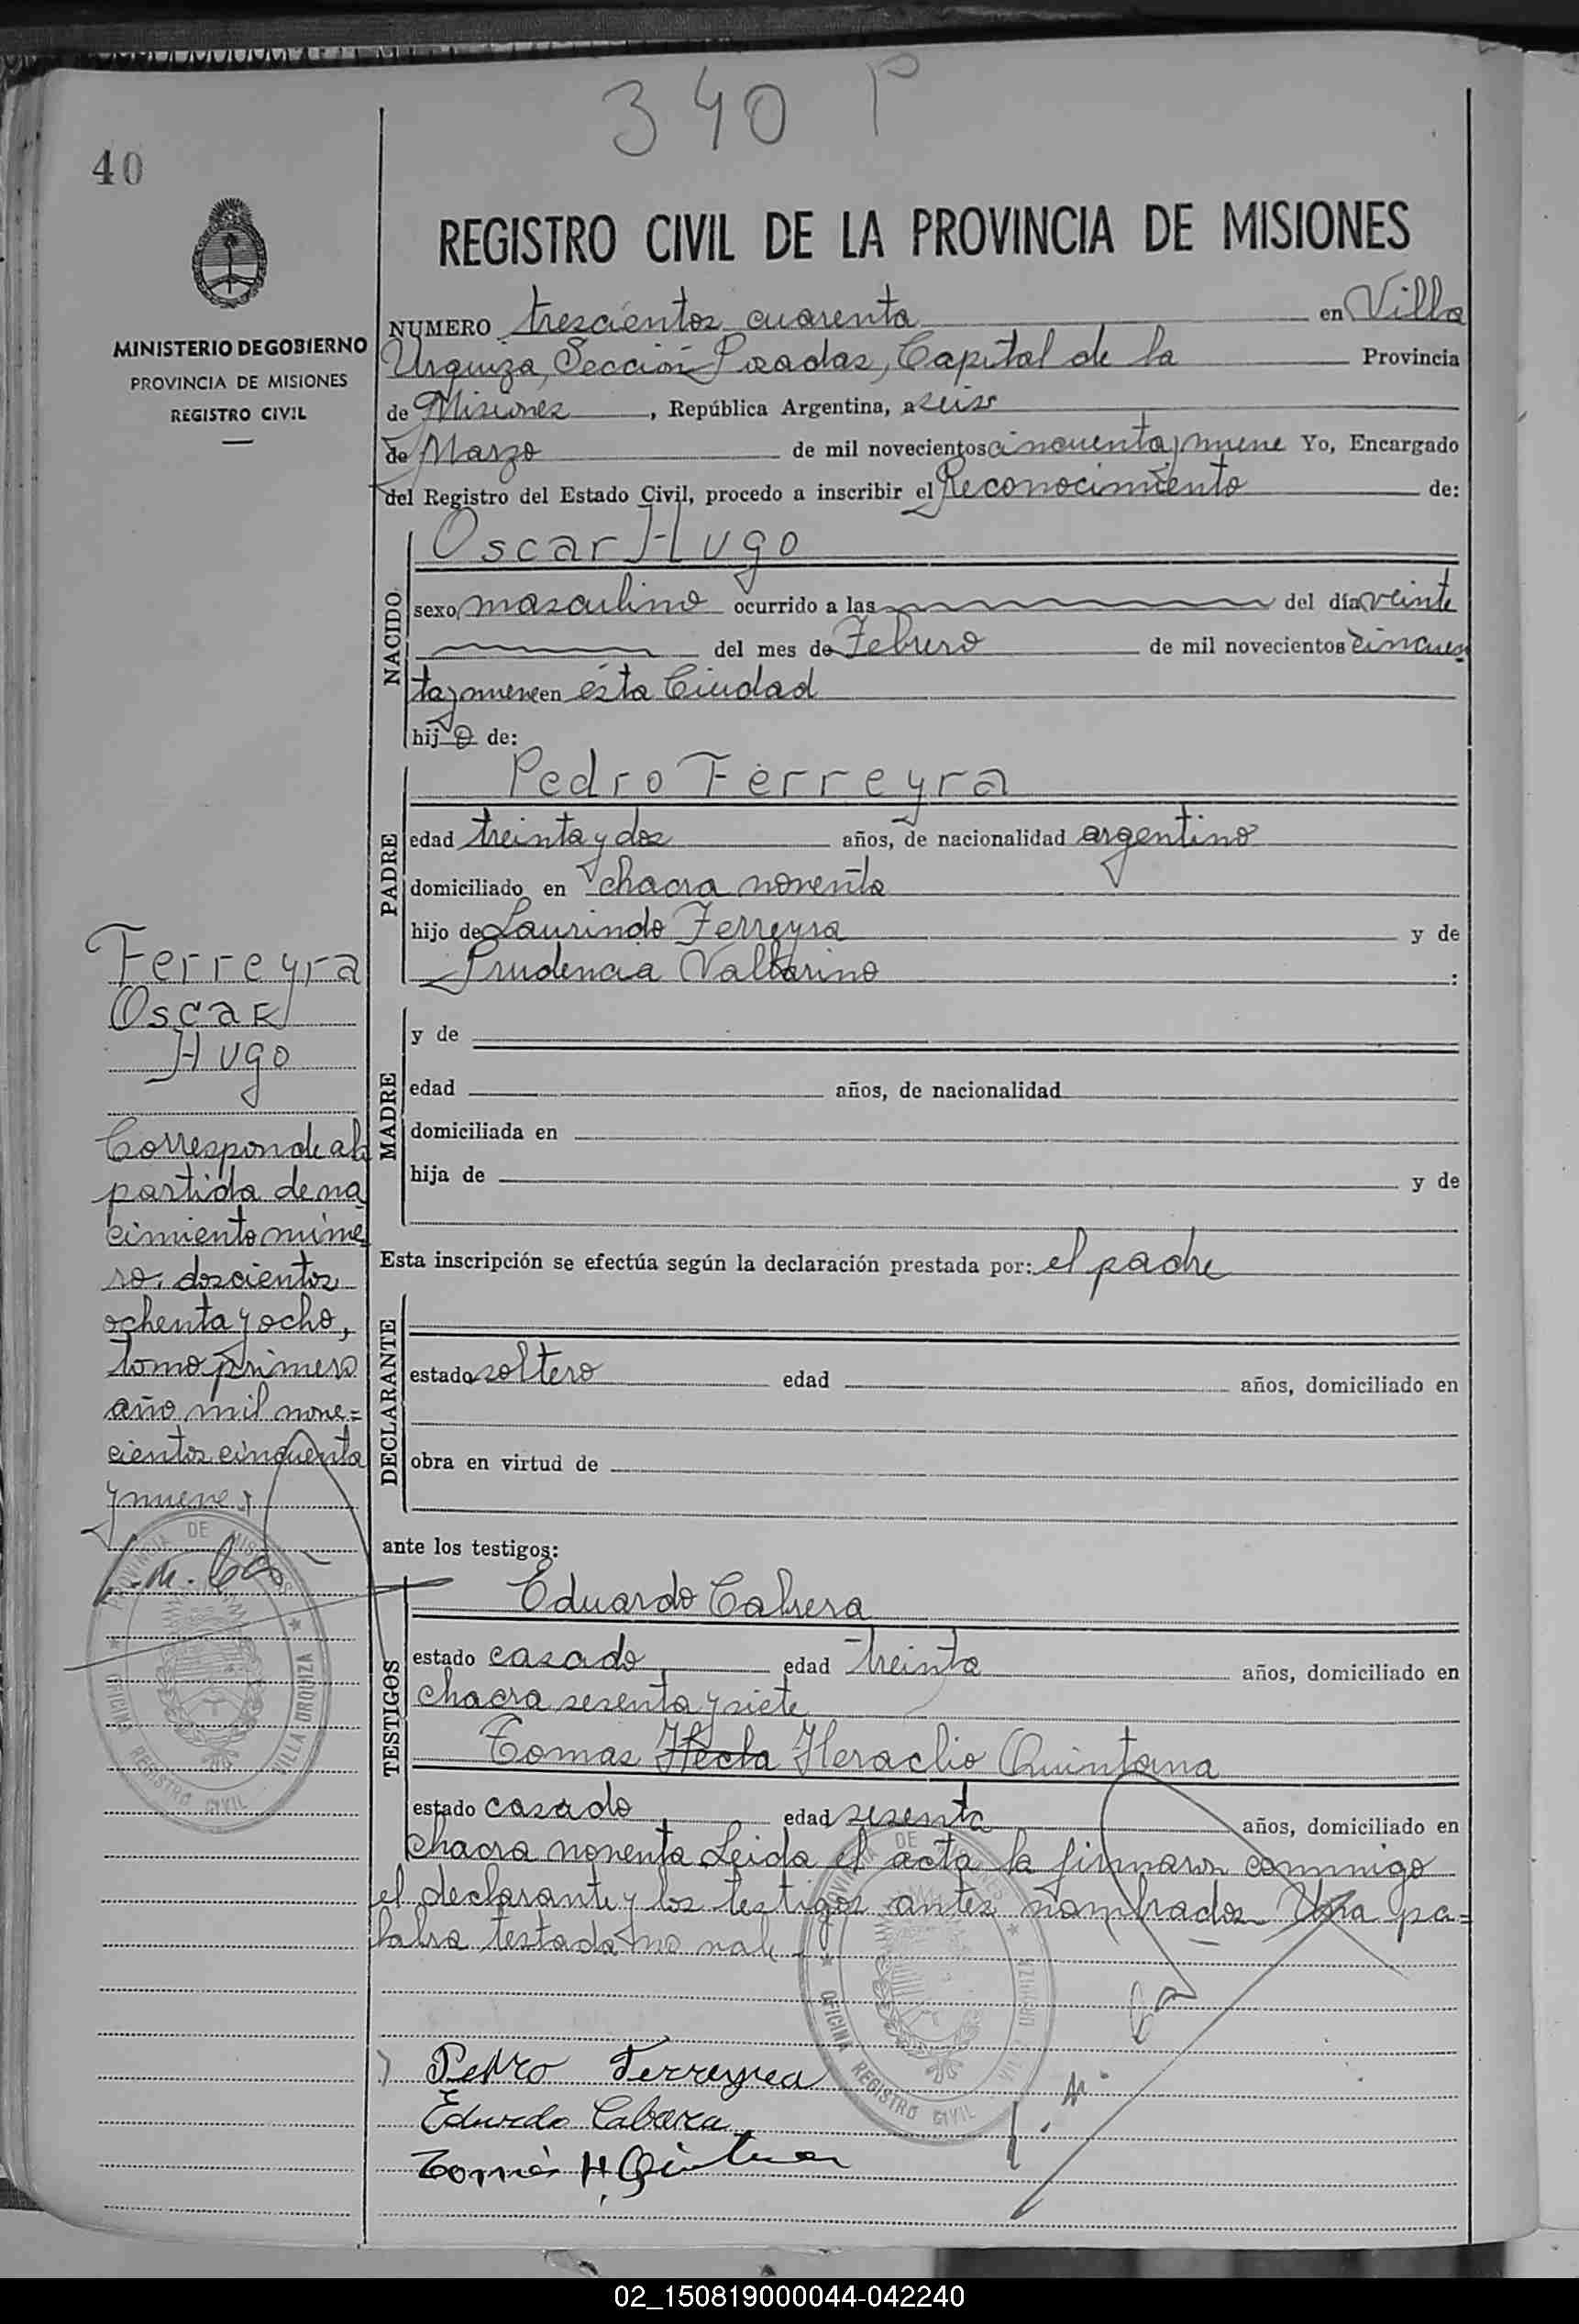 340 P
40
REGISTRO CIVIL DE LA PROVINCIA DE MISIONES
MINISTERIO DE GOBIERNO
PROVINCIA DE MISIONES
REGISTRO CIVIL
NUMERO trescientos cuarenta en Villa
Urquiza, Sección Posadas, Capital de la Provincia
de Misiones, República Argentina, a seis
de Marzo de mil novecientos cincuenta y nueve Yo, Encargado
del Registro del Estado Civil, procedo a inscribir el Reconocimiento de:
NACIDO
Oscar Hugo
sexo masculino ocurrido a las del día veinte
del mes de Febrero de mil novecientos cincuen
ta y nueve en ésta Ciudad
hijo de:
PADRE
Pedro Ferreyra
edad treinta y dos años, de nacionalidad argentino
domiciliado en chacra noventa
hijo de Laurindo Ferreyra y de
Prudencia Vallarino :
MADRE
y de
edad años, de nacionalidad
domiciliada en
hija de y de
Esta inscripción se efectúa según la declaración prestada por: el padre
DECLARANTE
estado soltero edad años, domiciliado en
obra en virtud de
ante los testigos:
TESTIGOS
Eduardo Cabrera
estado casado edad treinta años, domiciliado en
chacra sesenta y siete
Tomas Hecla Heraclio Quintana
estado casado edad sesenta años, domiciliado en
chacra noventa Leida el acta la firmaron conmigo
el declarante y los testigos antes nombrados Una pa=
labra testada no vale
Ferreyra
Oscar
Hugo
Corresponde a la
partida de na
cimiento núme
ro. doscientos
ochenta y ocho,
tomo primero
año mil nove=
cientos cincuenta
y nueve
PROVINCIA DE MISIONES
OFICINA REGISTRO CIVIL VILLA URQUIZA
PROVINCIA DE MISIONES
OFICINA REGISTRO CIVIL VILLA URQUIZA
Pedro Ferreyra
Eduardo Cabrera
Tomás H. Quintana
02_150819000044-042240